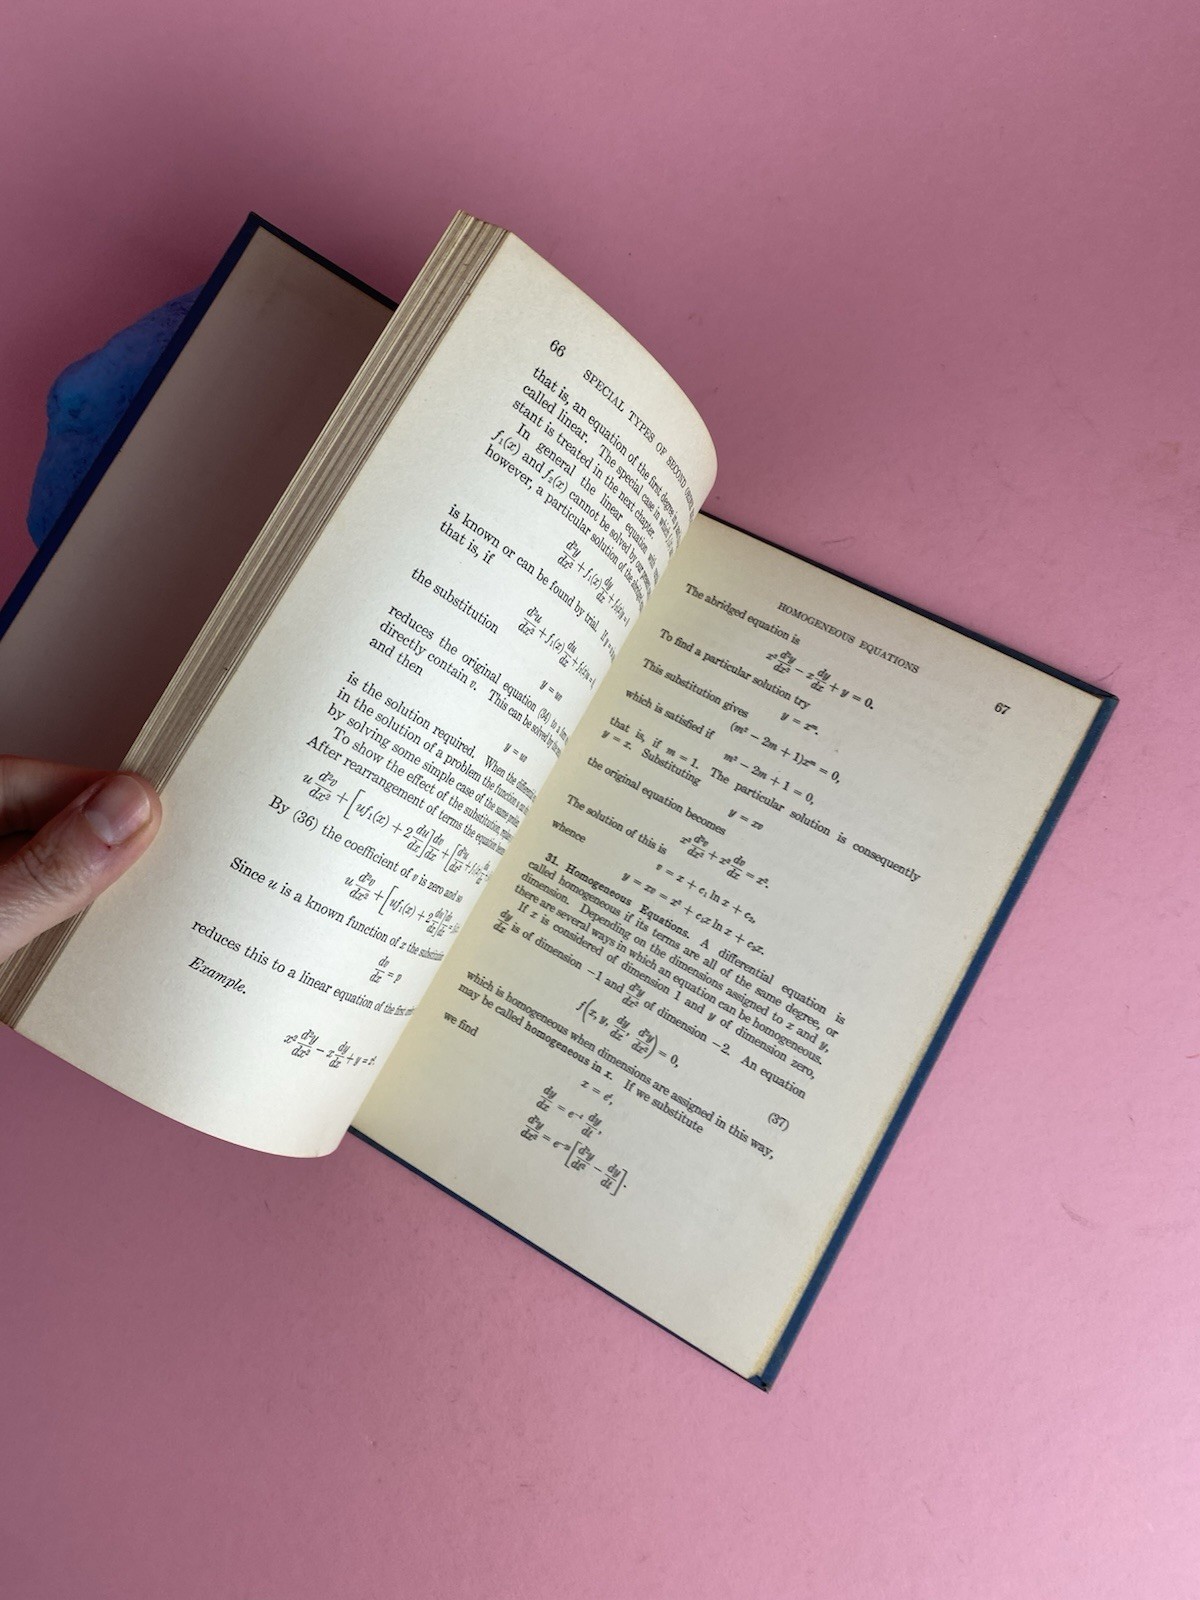 66
SPECIAL TYPES OF SECOND
that is, an equation of the first degree in
called linear. The special case in which
stant is treated in the next chapter.
In general the linear equation with
f₁(x) and f₂(x) cannot be solved by our
however, a particular solution of the
d²y/dx² + f₁(x) dy/dx +
is known or can be found by trial. If
that is, if
d²u/dx² + f₁(x) du/dx +
the substitution
y = uv
reduces the original equation (34) to a
directly contain v. This can be solved by
and then
y = uv
is the solution required. When the
in the solution of a problem the function
by solving some simple case of the same
To show the effect of the substitution,
After rearrangement of terms the equation
u d²v/dx² + [uf₁(x) + 2 du/dx] dv/dx + [d²u/dx² +
By (36) the coefficient of v is zero and so
u d²v/dx² + [uf₁(x) + 2 du/dx] dv/dx =
Since u is a known function of x the substitution
dv/dx = p
reduces this to a linear equation of the first
Example.
x² d²y/dx² − x dy/dx + y = x².
HOMOGENEOUS EQUATIONS
67
The abridged equation is
x² d²y/dx² − x dy/dx + y = 0.
To find a particular solution try
y = xᵐ.
This substitution gives
(m² − 2m + 1)xᵐ = 0,
which is satisfied if
m² − 2m + 1 = 0,
that is, if m = 1. The particular solution is consequently
y = x. Substituting
y = xv
the original equation becomes
x³ d²v/dx² + x² dv/dx = x².
The solution of this is
v = x + c₁ ln x + c₂,
whence
y = xv = x² + c₁x ln x + c₂x.
31. Homogeneous Equations. A differential equation is
called homogeneous if its terms are all of the same degree, or
dimension. Depending on the dimensions assigned to x and y,
there are several ways in which an equation can be homogeneous.
If x is considered of dimension 1 and y of dimension zero,
dy/dx is of dimension −1 and d²y/dx² of dimension −2. An equation
f(x, y, dy/dx, d²y/dx²) = 0, (37)
which is homogeneous when dimensions are assigned in this way,
may be called homogeneous in x. If we substitute
x = eᵗ,
we find
dy/dx = e⁻ᵗ dy/dt,
d²y/dx² = e⁻²ᵗ [d²y/dt² − dy/dt].